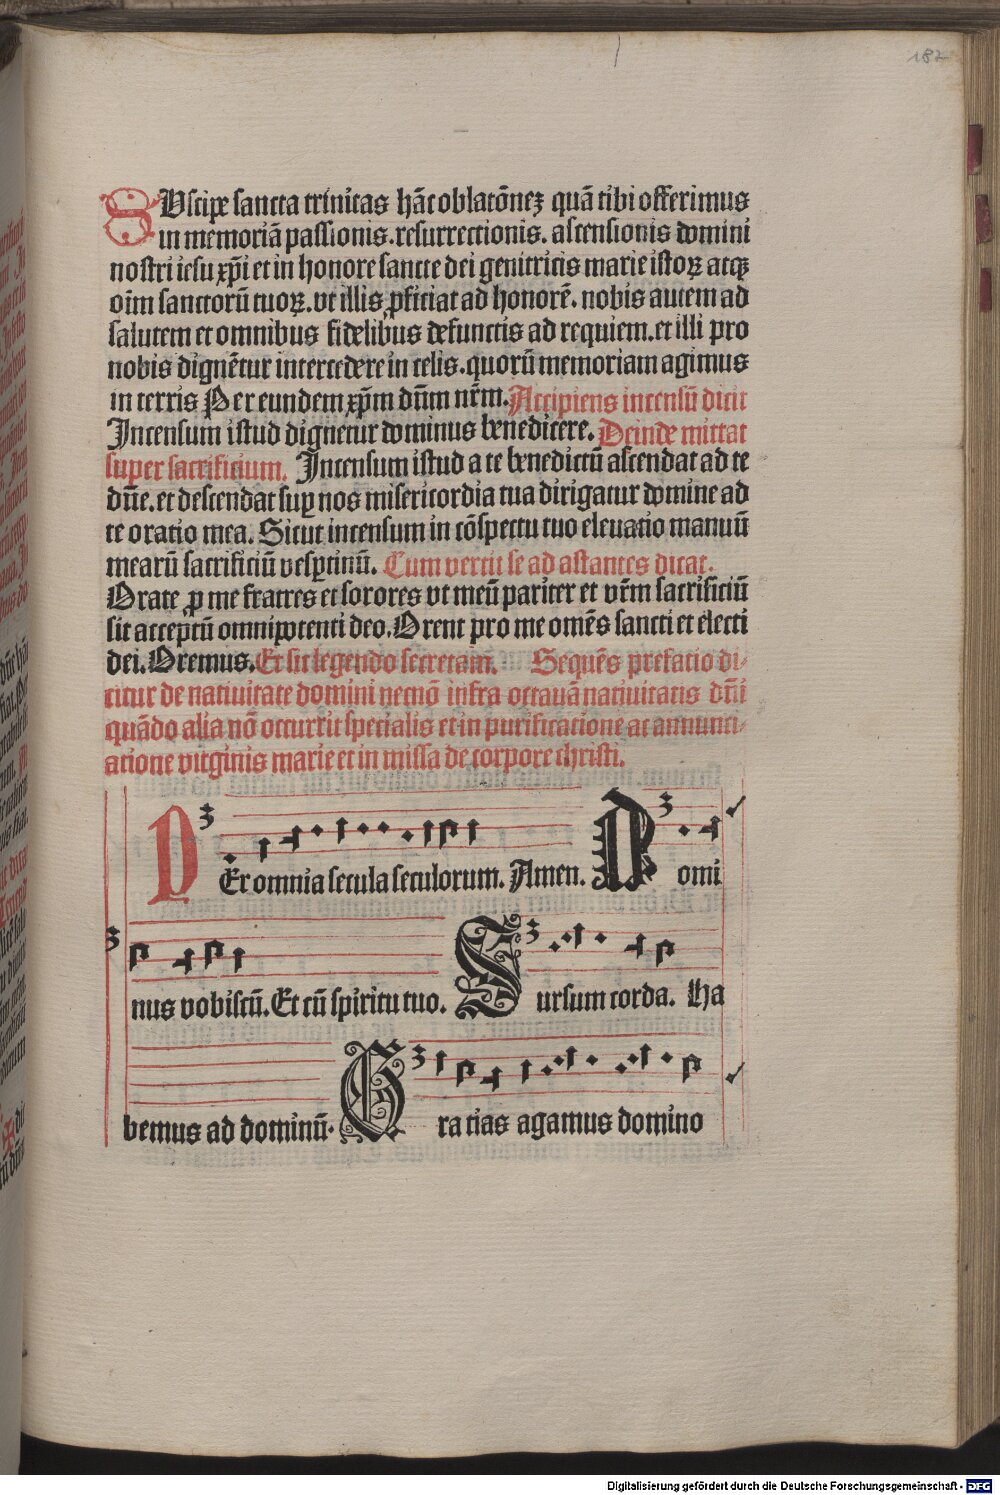 187
SUscipe sancta trinitas hāc oblatōneʒ quā tibi offerimus
in memoriā passionis.resurrectionis. ascensionis domini
nostri iesu xp̄i et in honore sancte dei genitricis marie istoꝝ atqꝫ
oīm sanctorū tuoꝝ.vt illis ꝓficiat ad honorē. nobis autem ad
salutem et omnibus fidelibus defunctis ad requiem.et illi pro
nobis dignētur intercedere in celis.quorū memoriam agimus
in terris Per eundem xp̄m dn̄m nr̄m. Accipiens incensū dicit
Incensum istud dignetur dominus benedicere. Deinde mittat
super sacrificium. Incensum istud a te benedictū ascendat ad te
dn̄e.et descendat suꝑ nos misericordia tua dirigatur domine ad
te oratio mea. Sicut incensum in cōspectu tuo eleuatio manuū
mearū sacrificiū vesꝑtinū. Cum vertit se ad astantes dicat.
Orate ꝓ me fratres et sorores vt meū pariter et vr̄m sacrificiū
sit acceptū omnipotenti deo.Orent pro me omēs sancti et electi
dei.Oremus.Et sit legendo secretam. Sequēs prefatio di-
citur de natiuitate domini necnō infra octauā natiuitatis dn̄i
quādo alia nō occurrit specialis et in purificatione ac annunci-
atione virginis marie et in missa de corpore christi.
P Er omnia secula seculorum. Amen. D omi
nus vobiscū.Et cū spiritu tuo. S ursum corda. Ha
bemus ad dominū. G ra tias agamus domino
Digitalisierung gefördert durch die Deutsche Forschungsgemeinschaft - DFG